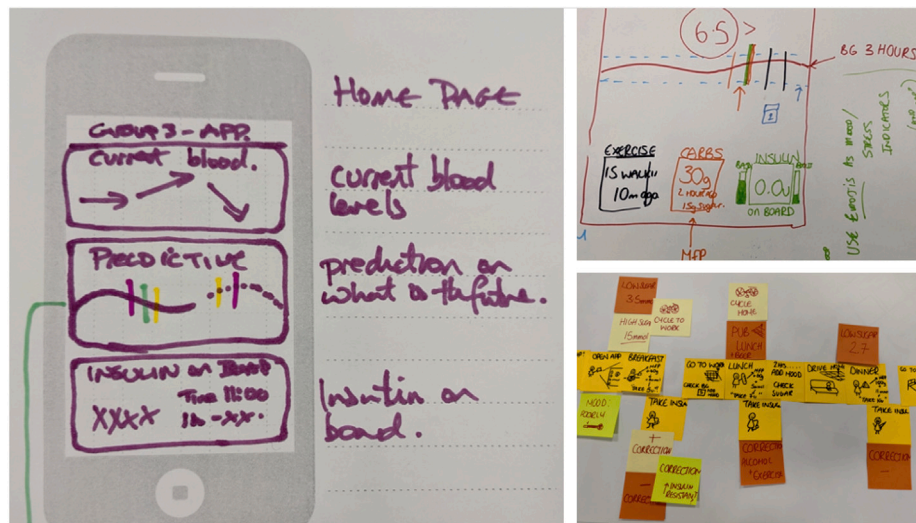 GROUP 3 - APP.
current blood.
PREDICTIVE
INSULIN on Board
Time 11:00
XXXX 1h -xx.
HOME PAGE
current blood
levels
prediction on
what is the future.
Insulin on
board.
6.5 >
BG 3 HOURS
EXERCISE
15 WALK
10m ago
CARBS
30g
2 HOUR AGO
15g Sugar.
INSULIN
0.0u
ON BOARD
MFP
USE EMOJIS AS MOOD/
STRESS
INDICATORS
LOW SUGAR
3.5mmol
HIGH SUGAR
15mmol
CYCLE TO
WORK
CYCLE
HOME
PUB
LUNCH
+ BEER
LOW SUGAR
2.7
OPEN APP
BREAKFAST
GO TO WORK
CHECK BG
LUNCH
2HRS...
ADD MOOD
CHECK
SUGAR
DRIVE HOME
DINNER
GO TO
MOOD:
POORLY
TAKE INSU
TAKE INSU
TAKE INSU
+
CORRECTION
-
CORRECTION
↑ INSULIN
RESISTANT
CORRECTIO
ALCOHOL
+ EXERCISE
CORRECTION
-